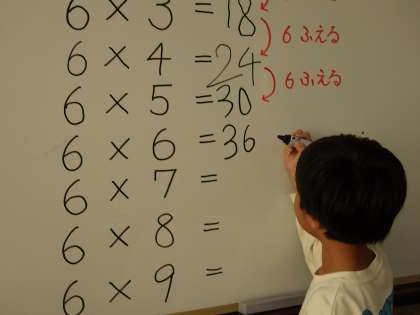 6 × 3 = 18
6 ふえる
6 × 4 = 24
6 ふえる
6 × 5 = 30
6 × 6 = 36
6 × 7 =
6 × 8 =
6 × 9 =